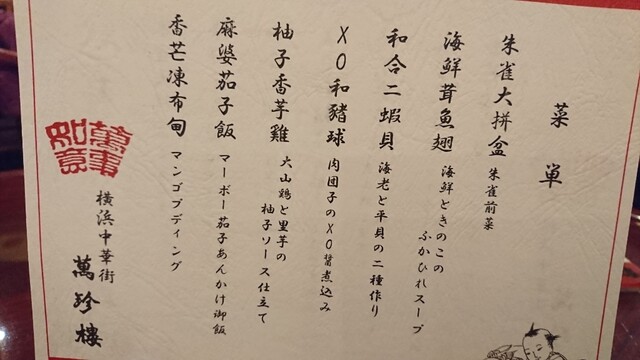 菜単
朱雀大拼盆 朱雀前菜
海鮮茸魚翅 海鮮ときのこの
ふかひれスープ
和合二蝦貝 海老と平貝の二種作り
XO和豬球 肉団子のXO醤煮込み
柚子香芋雞 大山鶏と里芋の
柚子ソース仕立て
麻婆茄子飯 マーボー茄子あんかけ御飯
香芒凍布甸 マンゴプディング
萬事如意
横浜中華街
萬珍樓